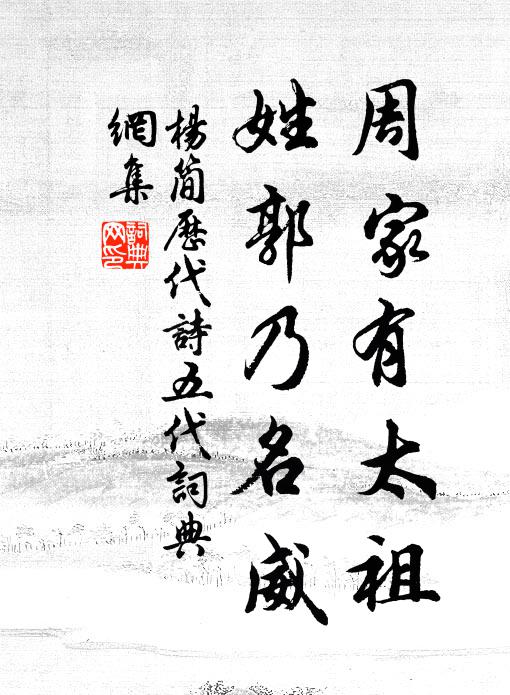 周家有太祖
姓郭乃名威
楊簡歷代詩五代詞典
網集
詞典
网印